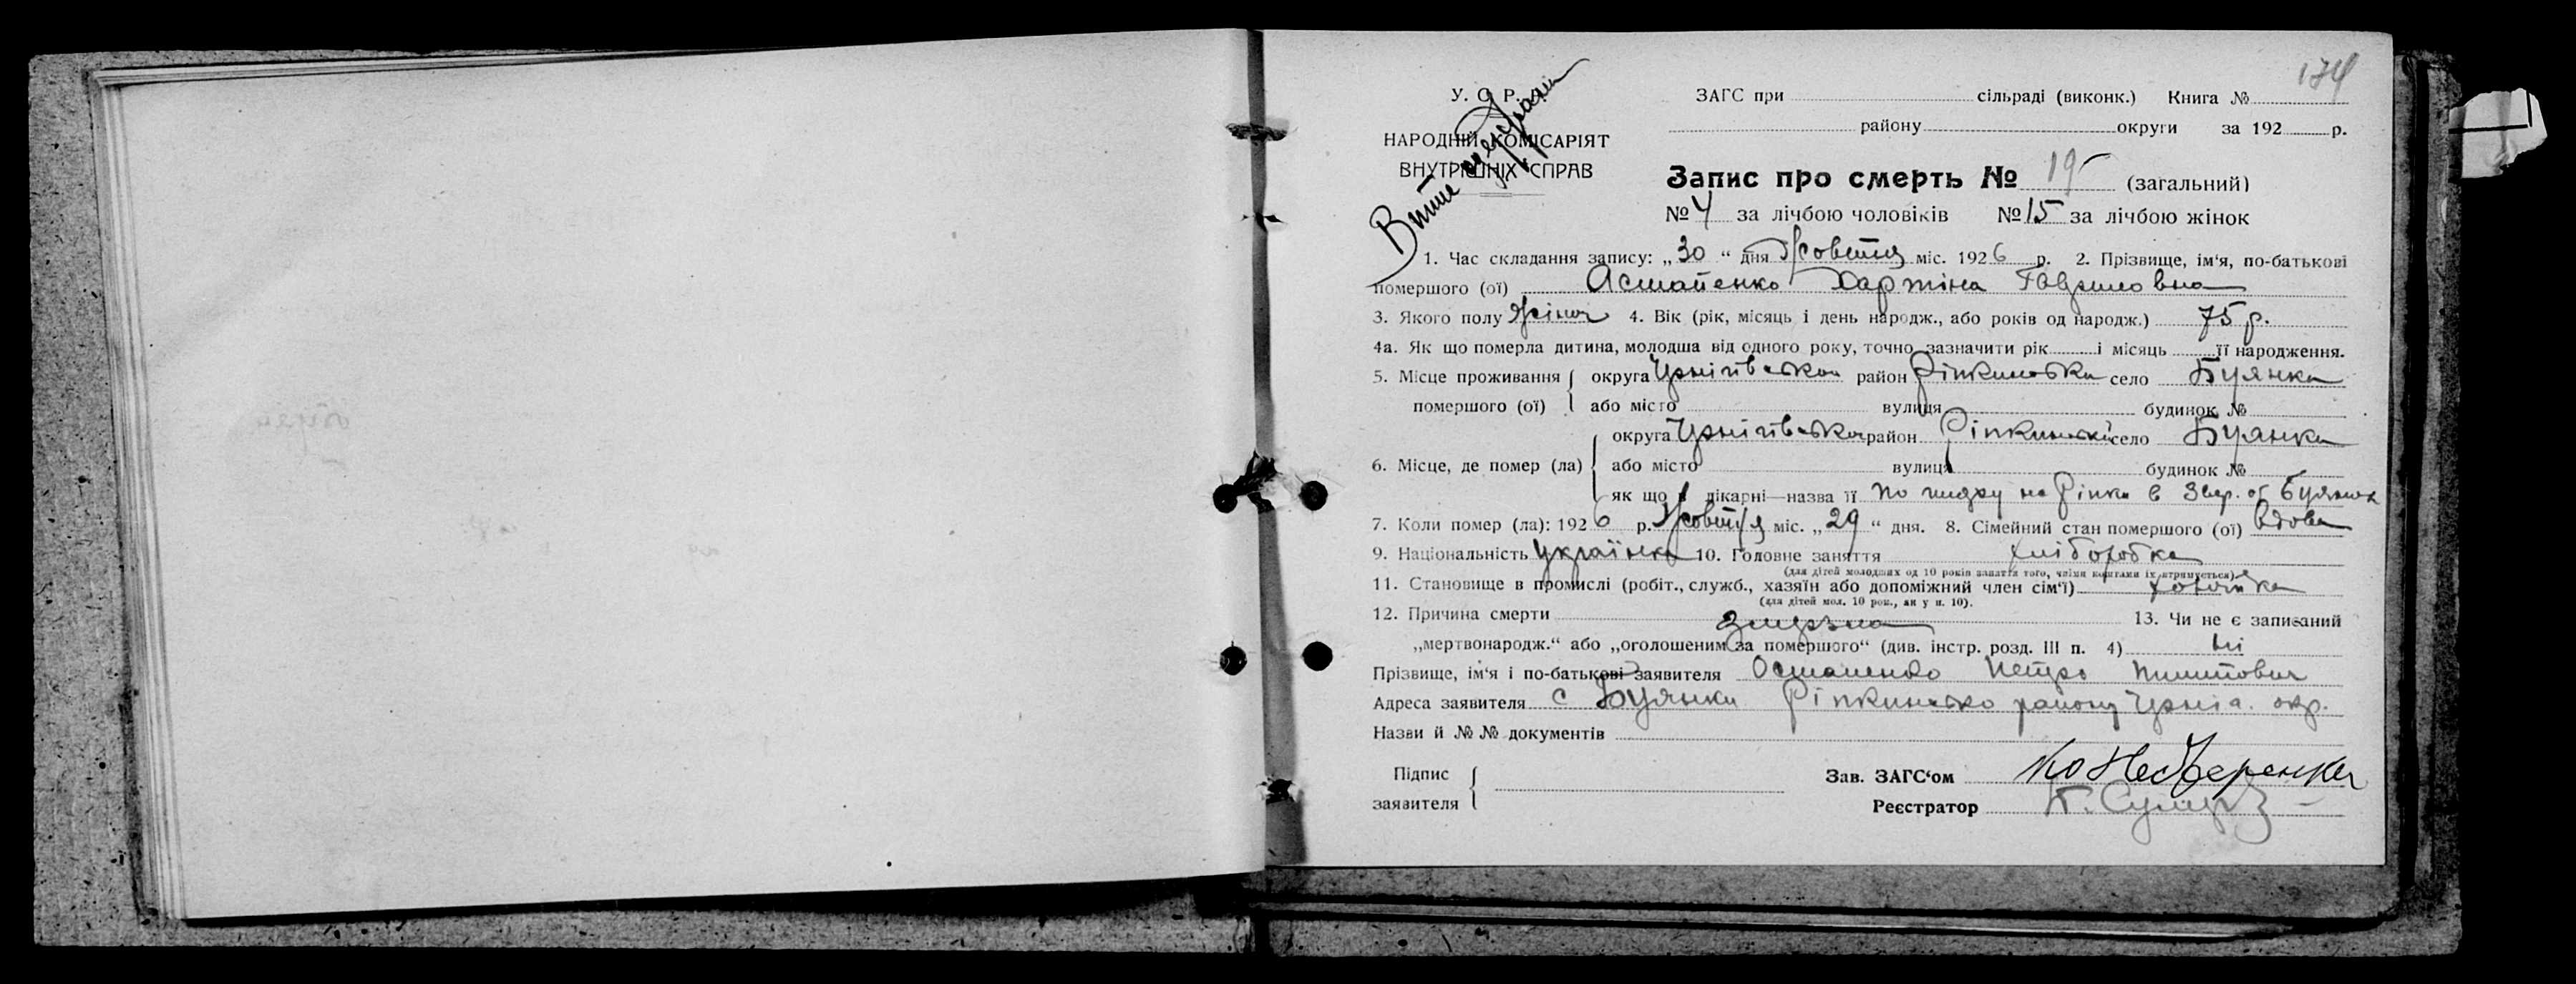 174
У. С. Р. Р.
НАРОДНІЙ КОМІСАРІЯТ
ВНУТРІШНІХ СПРАВ
ЗАГС при сільраді (виконк.) Книга №
району округи за 192 р.
Запис про смерть № 19 (загальний)
№ 4 за лічбою чоловіків № 15 за лічбою жінок
1. Час складання запису: „30“ дня Жовтня міс. 1926 р. 2. Прізвище, ім‘я, по-батькові
помершого (ої) Астапенко Хартіна Гавриловна
3. Якого полу Жіноч 4. Вік (рік, місяць і день народж., або років од народж.) 75 р.
4а. Як що померла дитина, молодша від одного року, точно зазначити рік і місяць її народження.
5. Місце проживання округа Чернігівська район Ріпкинська село Буянка
помершого (ої) або місто вулиця будинок №
округа Чернігівська район Ріпкинській село Буянка
6. Місце, де помер (ла) або місто вулиця будинок №
як що в лікарні—назва її по на Ріпки в
7. Коли помер (ла): 1926 р. Жовтня міс. „29“ дня. 8. Сімейний стан помершого (ої) вдова
9. Національність Українка 10. Головне заняття хліборобка
(для дітей молодших од 10 років заняття того, чиїми коштами їх утримується)
11. Становище в промислі (робіт., служб., хазяїн або допоміжний член сім‘ї)
(для дітей мол. 10 рок., як у п. 10).
12. Причина смерти змерзла 13. Чи не є записаний
„мертвонародж.“ або „оголошеним за помершого“ (див. інстр. розд. III п. 4) Ні
Прізвище, ім‘я і по-батькові заявителя Остапенко Петро Пилипович
Адреса заявителя с Буянки Ріпкинсько району Черніг. окр.
Назви й № № документів
Підпис
заявителя
Зав. ЗАГС‘ом
Реєстратор